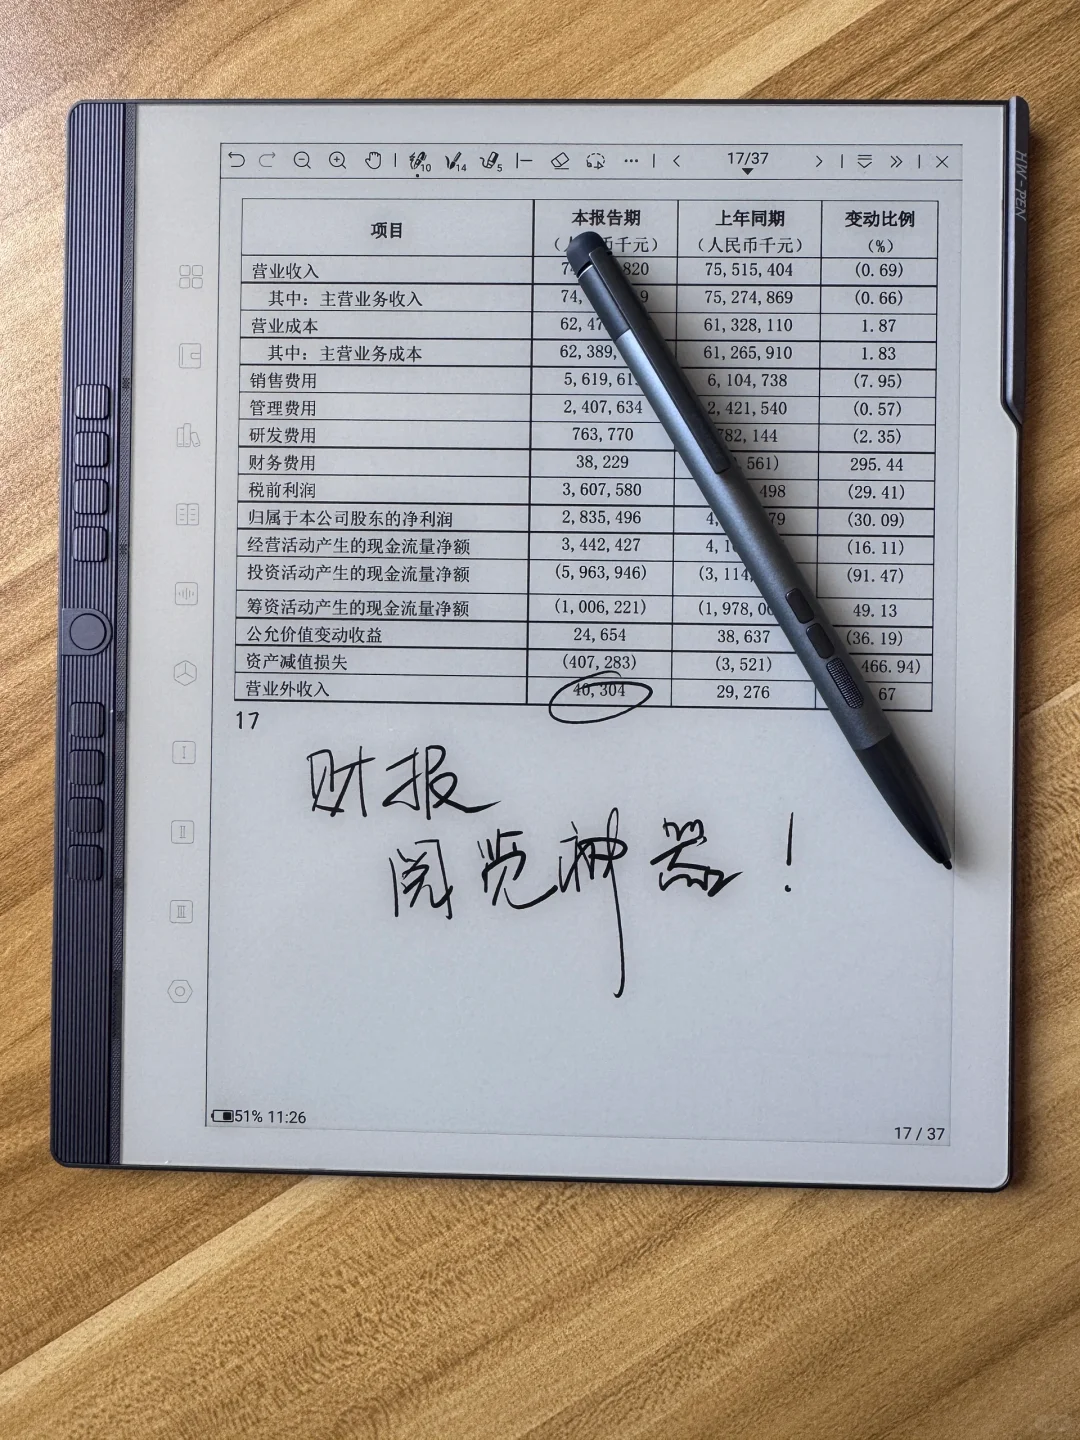 17/37
项目 本报告期 上年同期 变动比例
币千元） （人民币千元） （%）
营业收入 820 75,515,404 (0.69)
其中：主营业务收入 74, 9 75,274,869 (0.66)
营业成本 62,47 61,328,110 1.87
其中：主营业务成本 62,389, 61,265,910 1.83
销售费用 5,619,61 6,104,738 (7.95)
管理费用 2,407,634 2,421,540 (0.57)
研发费用 763,770 782,144 (2.35)
财务费用 38,229 561) 295.44
税前利润 3,607,580 498 (29.41)
归属于本公司股东的净利润 2,835,496 4, 79 (30.09)
经营活动产生的现金流量净额 3,442,427 4,1 (16.11)
投资活动产生的现金流量净额 (5,963,946) (3,114, (91.47)
筹资活动产生的现金流量净额 (1,006,221) (1,978,0 49.13
公允价值变动收益 24,654 38,637 (36.19)
资产减值损失 (407,283) (3,521) 466.94)
营业外收入 40,304 29,276 67
17
财报
阅览神器！
51% 11:26
17 / 37
HW-PEN